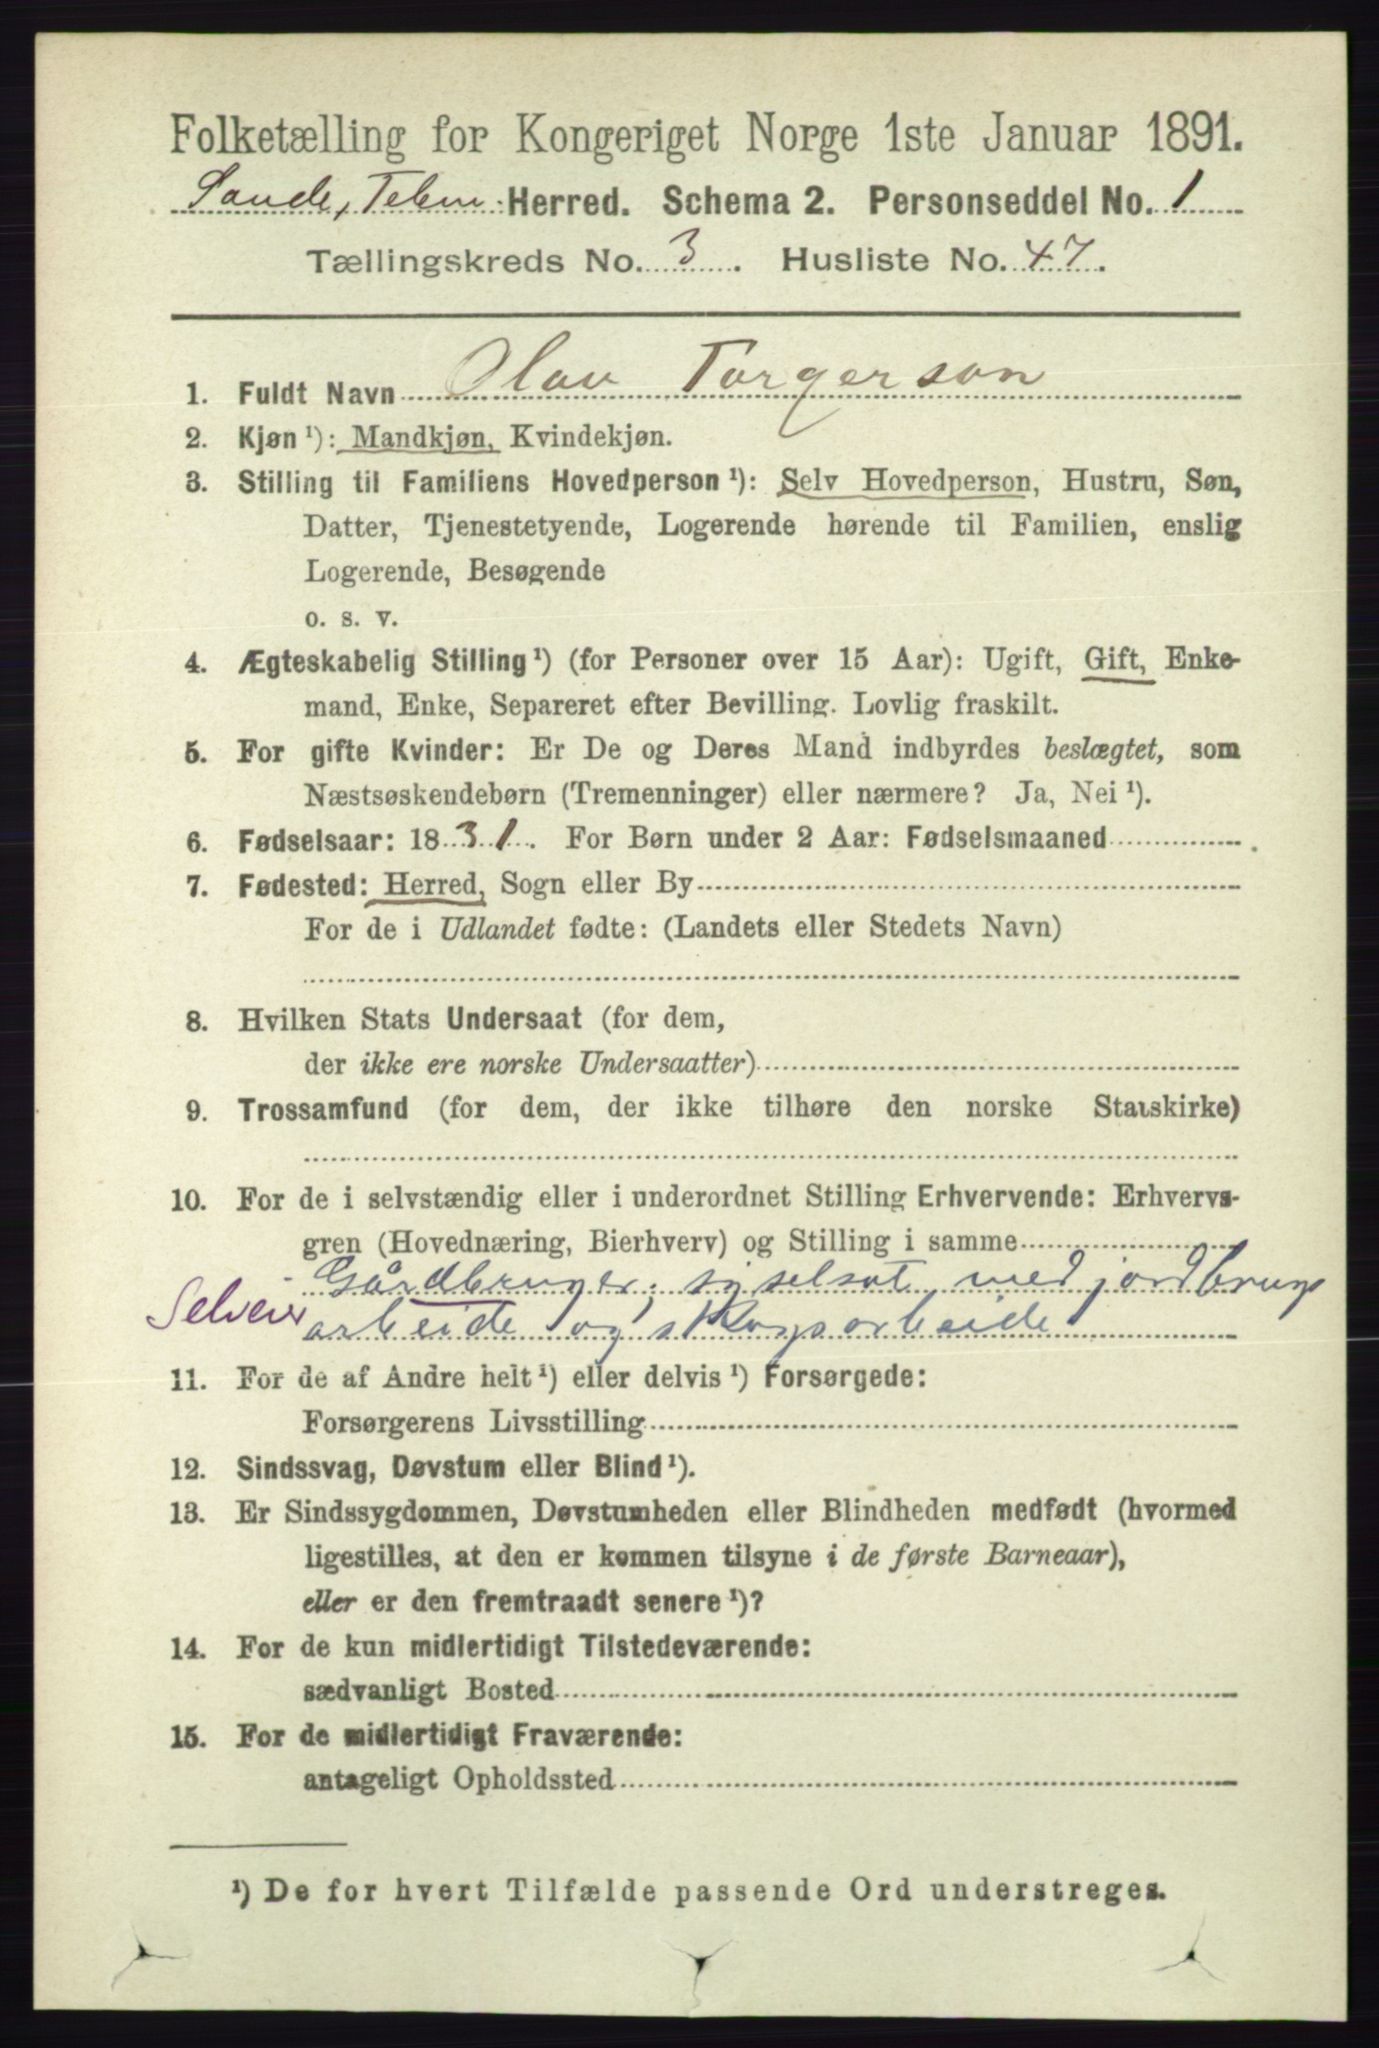 Folketælling for Kongeriget Norge 1ste Januar 1891.
Saude, Telem: Herred. Schema 2. Personseddel No. 1
Tællingskreds No. 3. Husliste No. 47.
1. Fuldt Navn Olav Torgerson
2. Kjøn ¹): Mandkjøn, Kvindekjøn.
3. Stilling til Familiens Hovedperson ¹): Selv Hovedperson, Hustru, Søn,
Datter, Tjenestetyende, Logerende hørende til Familien, enslig
Logerende, Besøgende
o. s. v.
4. Ægteskabelig Stilling ¹) (for Personer over 15 Aar): Ugift, Gift, Enke-
mand, Enke, Separeret efter Bevilling. Lovlig fraskilt.
5. For gifte Kvinder: Er De og Deres Mand indbyrdes beslægtet, som
Næstsøskendebørn (Tremenninger) eller nærmere? Ja, Nei ¹).
6. Fødselsaar: 1831. For Børn under 2 Aar: Fødselsmaaned
7. Fødested: Herred, Sogn eller By
For de i Udlandet fødte: (Landets eller Stedets Navn)
8. Hvilken Stats Undersaat (for dem,
der ikke ere norske Undersaatter)
9. Trossamfund (for dem, der ikke tilhøre den norske Statskirke)
10. For de i selvstændig eller i underordnet Stilling Erhvervende: Erhvervs-
gren (Hovednæring, Bierhverv) og Stilling i samme
Gårdbruger, syselsat med jordbrugs
Selveier arbeide og skogsarbeide
11. For de af Andre helt ¹) eller delvis ¹) Forsørgede:
Forsørgerens Livsstilling
12. Sindssvag, Døvstum eller Blind ¹).
13. Er Sindssygdommen, Døvstumheden eller Blindheden medfødt (hvormed
ligestilles, at den er kommen tilsyne i de første Barneaar),
eller er den fremtraadt senere ¹)?
14. For de kun midlertidigt Tilstedeværende:
sædvanligt Bosted
15. For de midlertidigt Fraværende:
antageligt Opholdssted
¹) De for hvert Tilfælde passende Ord understreges.